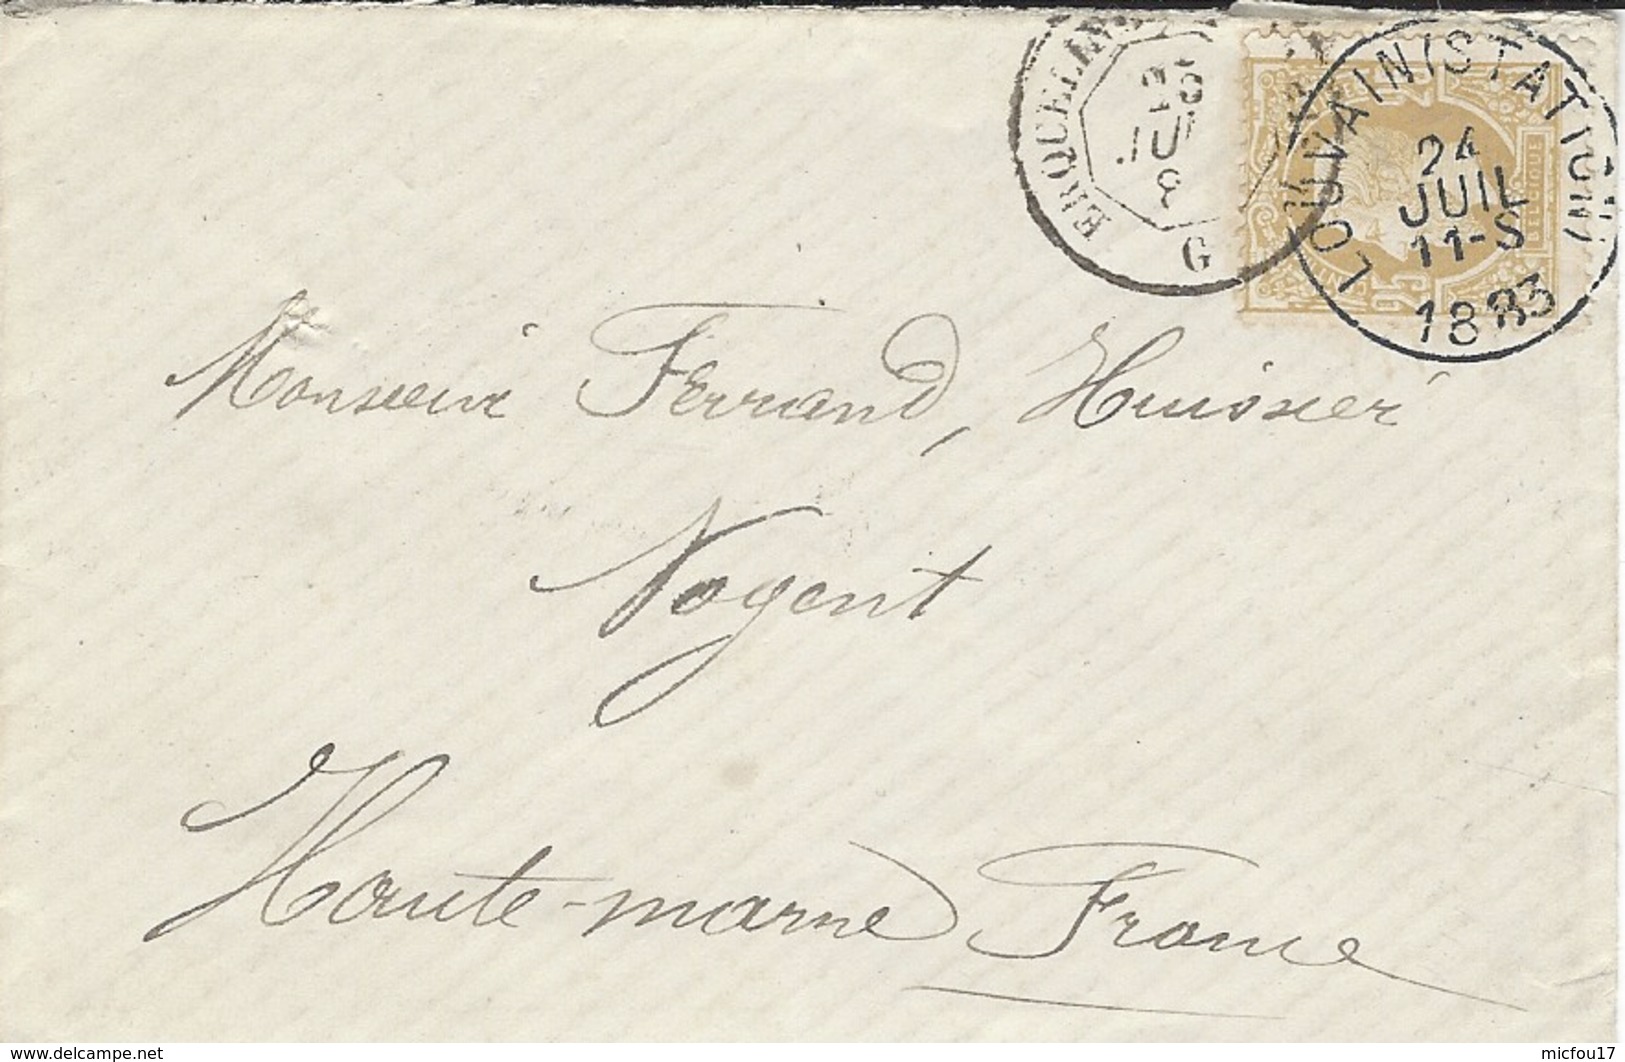 ERQUELINES
25
JUIL
G
LOUVAIN (STATION)
24
JUIL
11-S
1883
BELGIQUE
25
Monsieur Ferrand, Huissier
Nogent
Haute-marne France
www.delcampe.net
micfou17